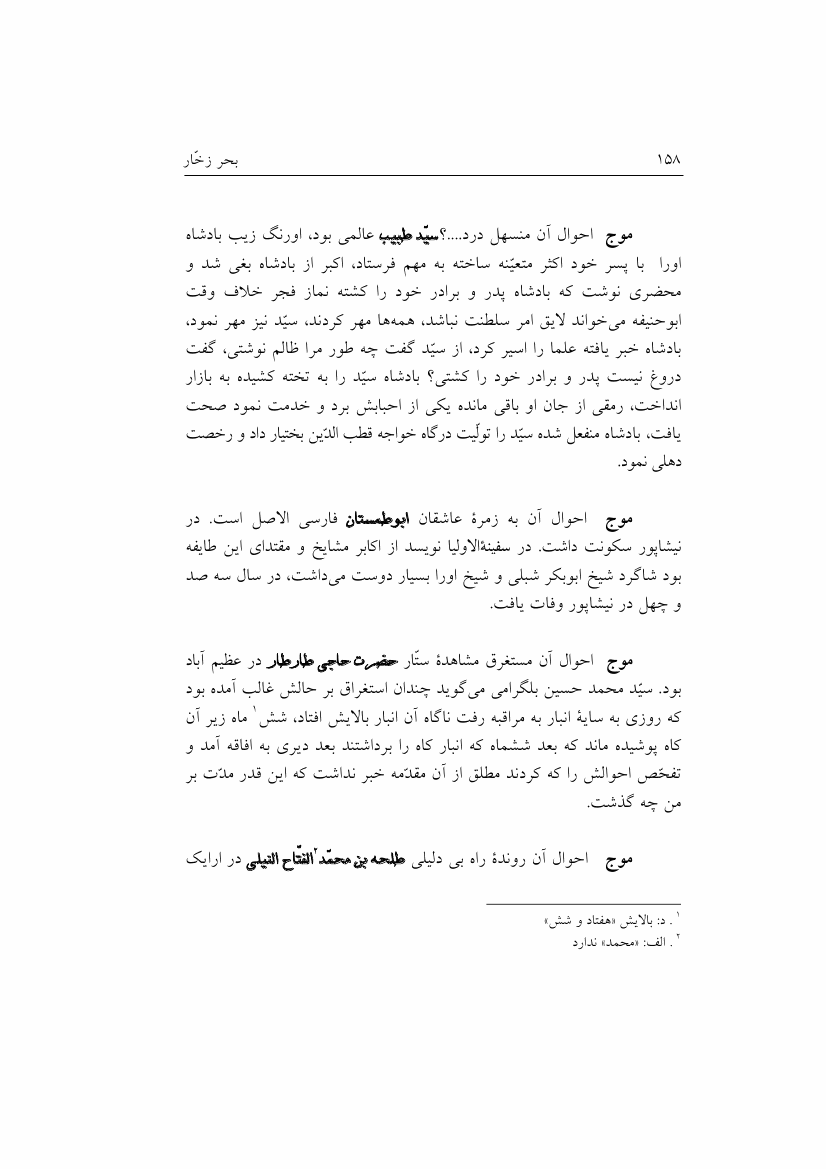 ۱۵۸ بحر زخّار
موج احوال آن منسهل درد....؟سیّد طبیب عالمی بود، اورنگ زیب بادشاه
اورا با پسر خود اکثر متعیّنه ساخته به مهم فرستاد، اکبر از بادشاه بغی شد و
محضری نوشت که بادشاه پدر و برادر خود را کشته نماز فجر خلاف وقت
ابوحنیفه می‌خواند لایق امر سلطنت نباشد، همه‌ها مهر کردند، سیّد نیز مهر نمود،
بادشاه خبر یافته علما را اسیر کرد، از سیّد گفت چه طور مرا ظالم نوشتی، گفت
دروغ نیست پدر و برادر خود را کشتی؟ بادشاه سیّد را به تخته کشیده به بازار
انداخت، رمقی از جان او باقی مانده یکی از احبابش برد و خدمت نمود صحت
یافت، بادشاه منفعل شده سیّد را تولّیت درگاه خواجه قطب الدّین بختیار داد و رخصت
دهلی نمود.
موج احوال آن به زمرهٔ عاشقان ابوطمستان فارسی الاصل است. در
نیشاپور سکونت داشت. در سفینةالاولیا نویسد از اکابر مشایخ و مقتدای این طایفه
بود شاگرد شیخ ابوبکر شبلی و شیخ اورا بسیار دوست می‌داشت، در سال سه صد
و چهل در نیشاپور وفات یافت.
موج احوال آن مستغرق مشاهدهٔ ستّار حضرت حاجی طارطار در عظیم آباد
بود. سیّد محمد حسین بلگرامی می‌گوید چندان استغراق بر حالش غالب آمده بود
که روزی به سایهٔ انبار به مراقبه رفت ناگاه آن انبار بالایش افتاد، شش۱ ماه زیر آن
کاه پوشیده ماند که بعد ششماه که انبار کاه را برداشتند بعد دیری به افاقه آمد و
تفحّص احوالش را که کردند مطلق از آن مقدّمه خبر نداشت که این قدر مدّت بر
من چه گذشت.
موج احوال آن روندهٔ راه بی دلیلی طلحه بن محمّد۲ الفتّاح النیلی در ارایک
۱ . د: بالایش «هفتاد و شش»
۲ . الف: «محمد» ندارد